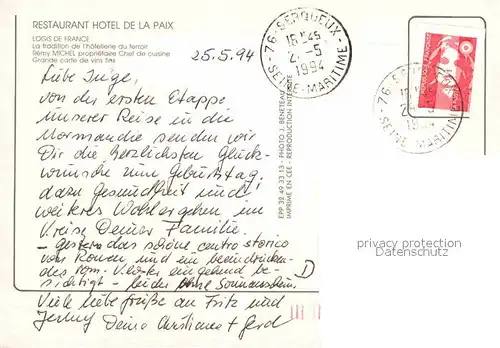 RESTAURANT HOTEL DE LA PAIX
LOGIS DE FRANCE
La tradition de l'hôtellerie du terroir
Rémy MICHEL propriétaire Chef de cuisine
Grande carte de vins fins
25.5.94
Liebe Inge,
von der ersten Etappe
unserer Reise in die
Normandie senden wir
Dir die herzlichsten Glück-
wünsche zum Geburtstag,
dazu Gesundheit und
weiteres Wohlergehen im
Kreise Deiner Familie.
– gestern das schöne centro storico
von Rouen und ein beeindrucken-
des rom. Kloster eingehend be-
sichtigt – leider ohne Sonnenschein.
Viele liebe Grüße an Fritz und
Deine Christiane + Gerd
EPP 32 49 33 15 - PHOTO J. BENETEAU
IMPRIME EN CEE - REPRODUCTION INTERDITE
76 - SERQUEUX -
16 H 45
2 -5
1994
SEINE-MARITIME
REPUBLIQUE FRANÇAISE
76 - SE
1994
SEINE-MARITIME
D
privacy protection
Datenschutz